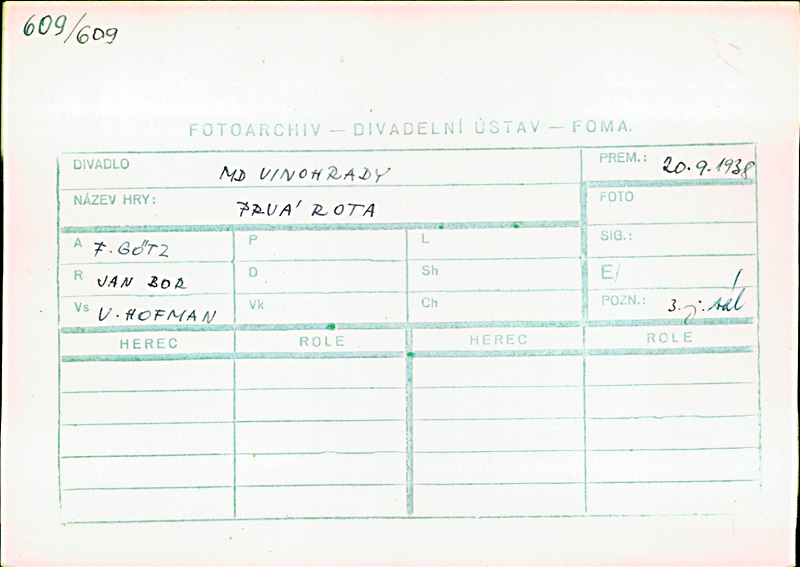 609/609
FOTOARCHIV — DIVADELNÍ ÚSTAV — FOMA.
DIVADLO MD VINOHRADY PREM.: 20.9.1938
NÁZEV HRY: PRVÁ ROTA FOTO
A F. GÖTZ P L SIG.:
R JAN BOR D Sh E/
Vs V. HOFMAN Vk Ch POZN.: 3. j.
HEREC ROLE HEREC ROLE